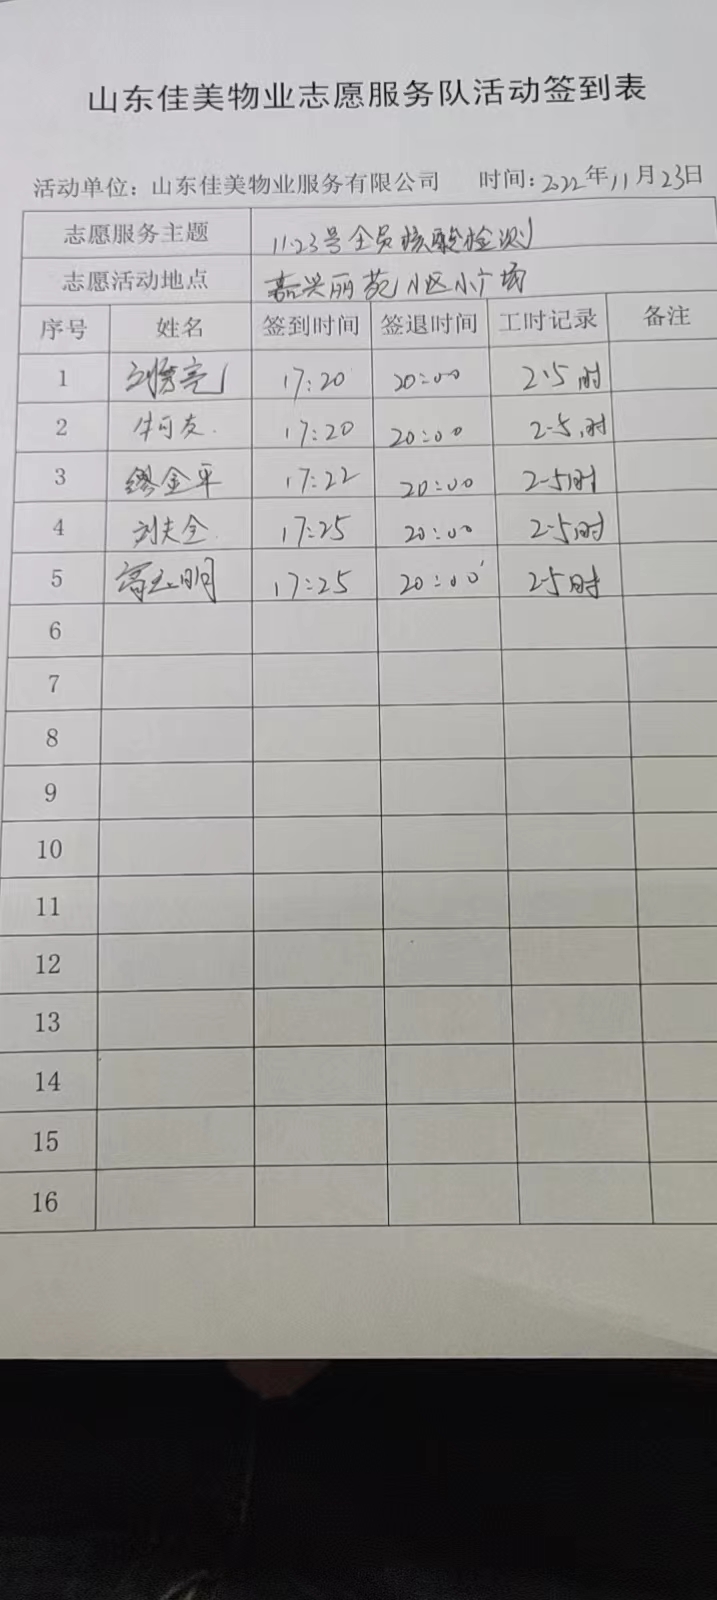 山东佳美物业志愿服务队活动签到表
活动单位：山东佳美物业服务有限公司 时间：2022年11月23日
志愿服务主题 11.23号全员核酸检测
志愿活动地点 嘉兴丽苑小区小广场
序号 姓名 签到时间 签退时间 工时记录 备注
1 17:20 20:00 2.5时
2 牛可友 17:20 20:00 2.5时
3 缪金平 17:22 20:00 2.5时
4 刘夫全 17:25 20:00 2.5时
5 17:25 20:00 2.5时
6
7
8
9
10
11
12
13
14
15
16